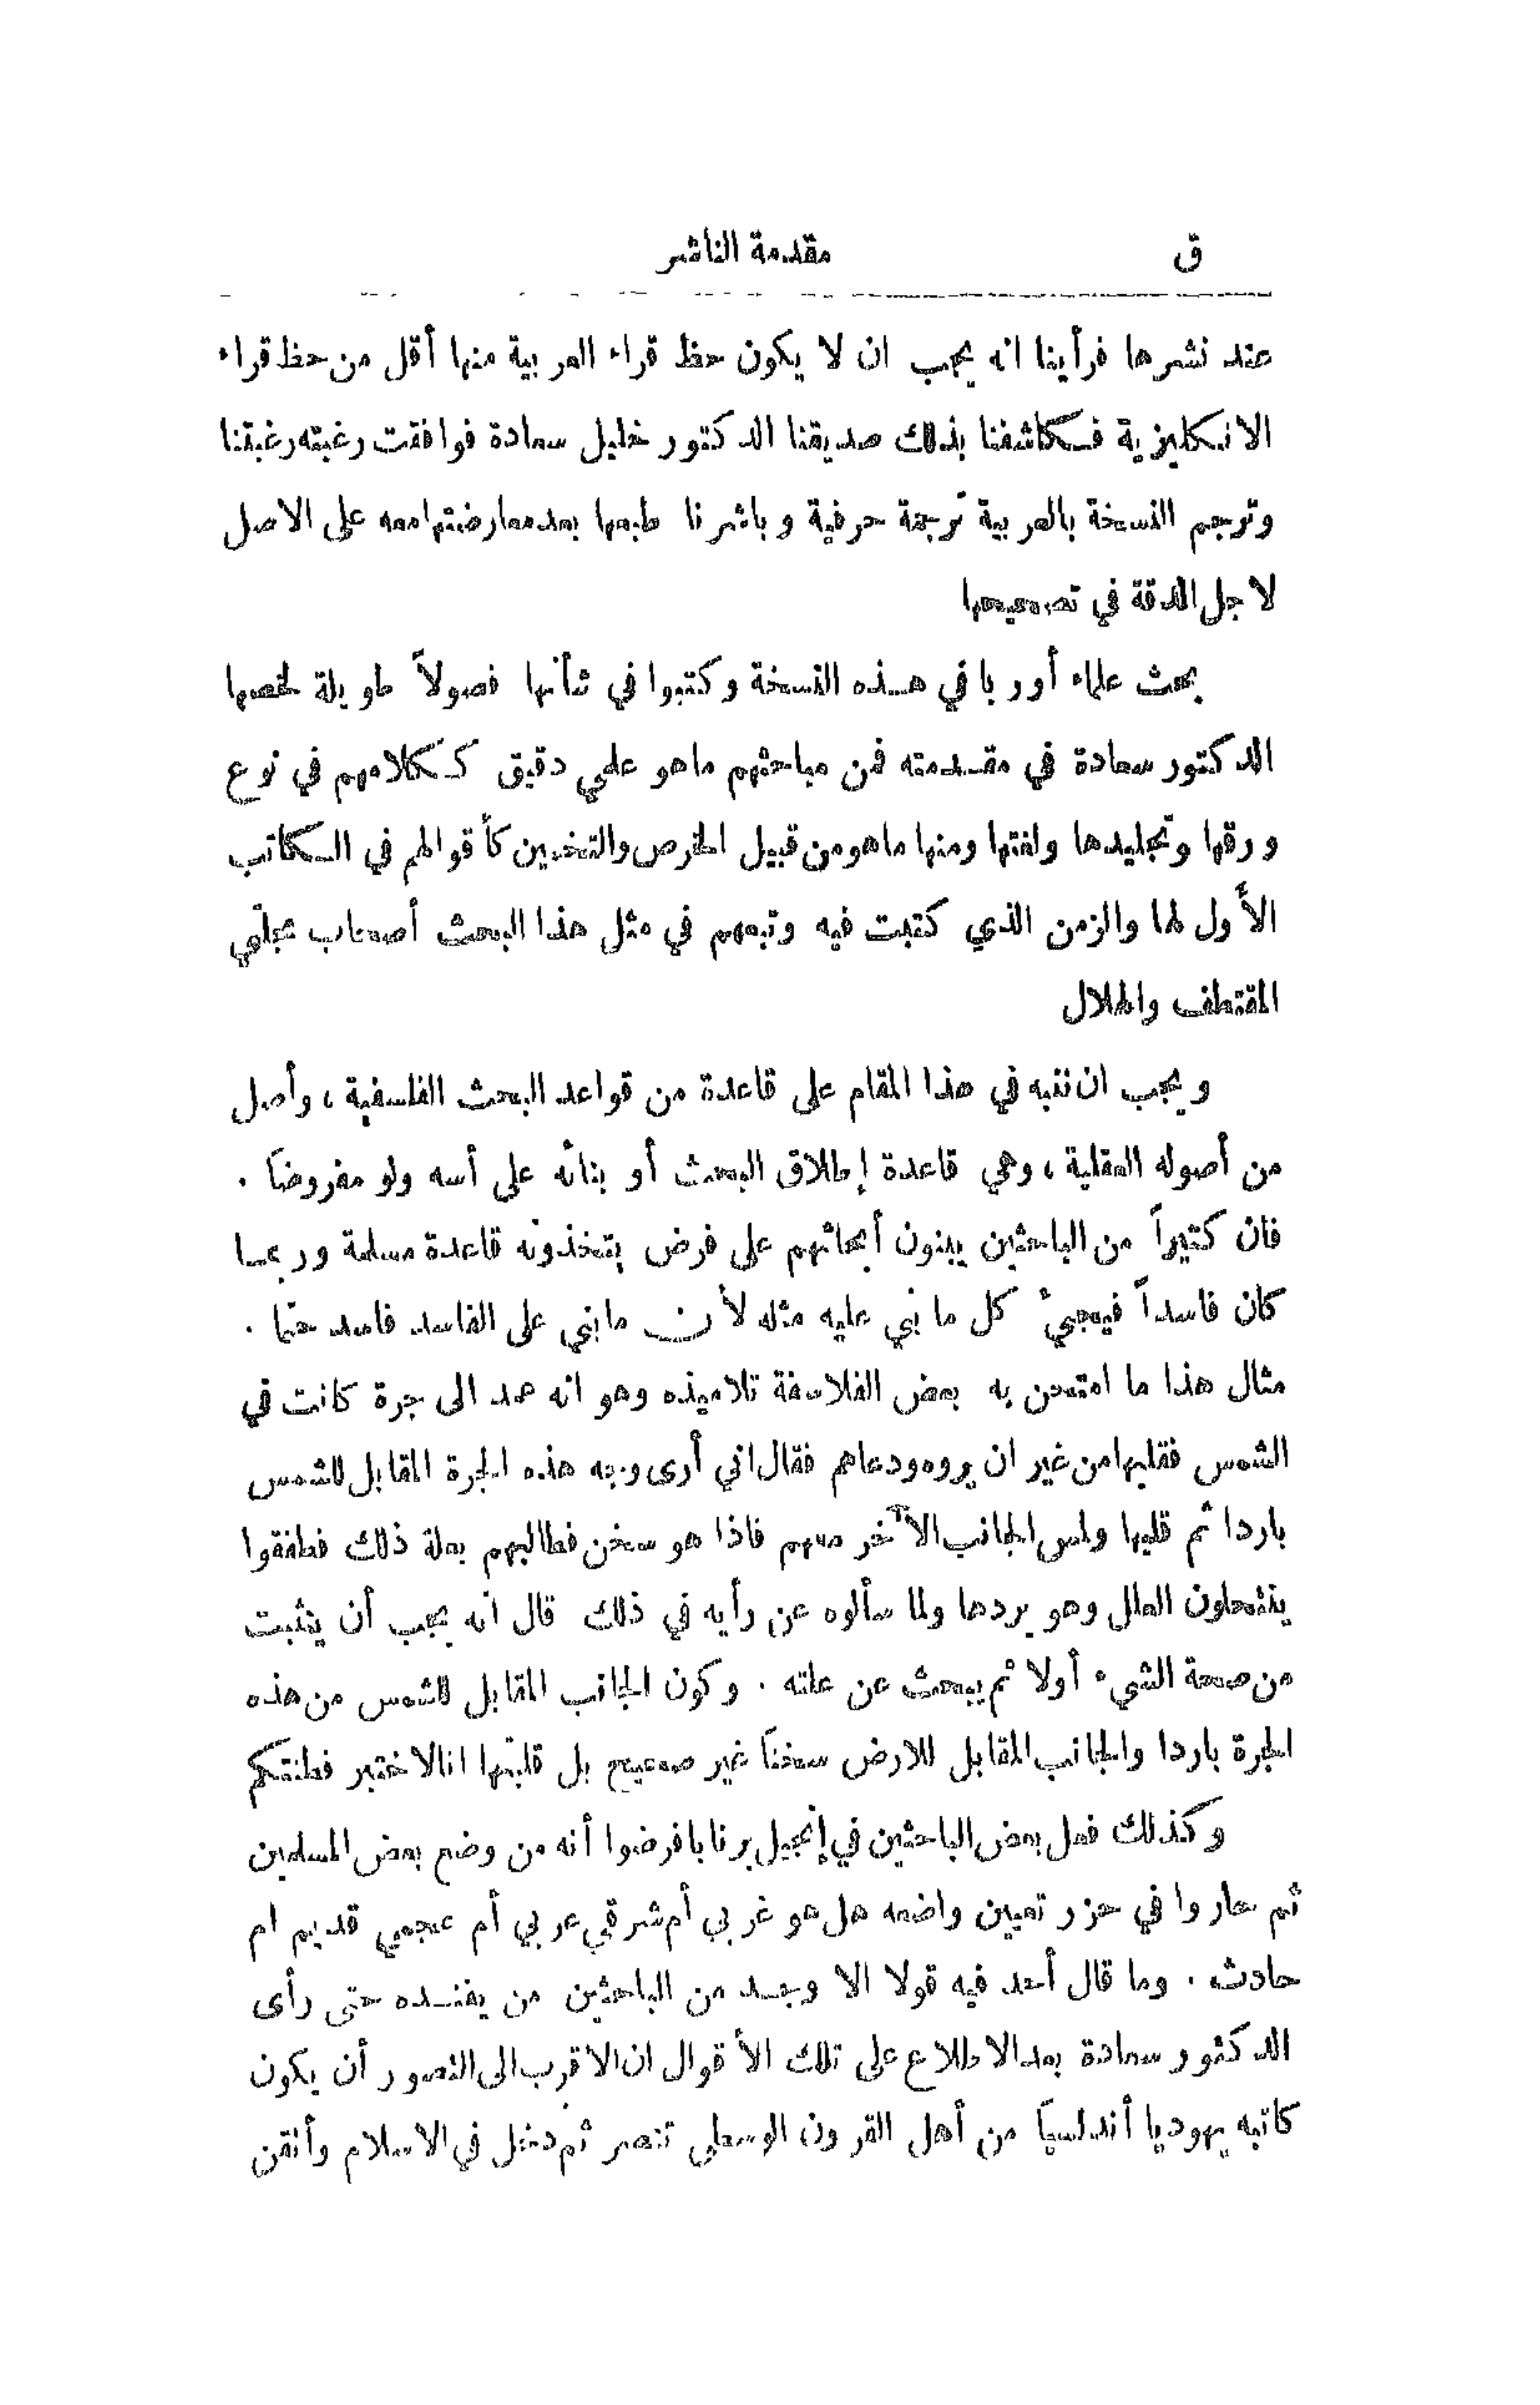 ق
مقدمة الناشر
عند نشرها فرأينا انه يجب ان لا يكون حظ قراء العربية منها أقل من حظ قراء
الانكليزية فكاشفنا بذلك صديقنا الدكتور خليل سعادة فوافقت رغبته رغبتنا
وترجم النسخة بالعربية ترجمة حرفية وباشرنا طبعها بعد معارضتها معه على الاصل
لاجل الدقة في تصحيحها
بحث علماء أوربا في هذه النسخة وكتبوا في شأنها فصولاً طويلة لخصها
الدكتور سعادة في مقدمته فمن مباحثهم ماهو علمي دقيق ككلامهم في نوع
ورقها وتجليدها ولغتها ومنها ماهو من قبيل الخرص والتخمين كأقوالهم في الكاتب
الأول لها والزمن الذي كتبت فيه وتبعهم في مثل هذا البحث أصحاب مجلّتي
المقتطف والهلال
ويجب ان ننبه في هذا المقام على قاعدة من قواعد البحث الفلسفية ، وأصل
من أصوله العقلية ، وهي قاعدة إطلاق البحث أو بنائه على أسه ولو مفروضاً .
فان كثيراً من الباحثين يبنون أبحاثهم على فرض يتخذونه قاعدة مسلمة وربما
كان فاسداً فيجيءُ كل ما بُني عليه مثله لأن مابني على الفاسد فاسد حتما .
مثال هذا ما امتحن به بعض الفلاسفة تلاميذه وهو انه عمد الى جرة كانت في
الشمس فقلبها من غير ان يروه ودعاهم فقال اني أرى وجه هذه الجرة المقابل للشمس
باردا ثم قلبها ولمس الجانب الآخر معهم فاذا هو سخن فطالبهم بعلة ذلك فطفقوا
ينتحلون العلل وهو يردها ولما سألوه عن رأيه في ذلك قال انه يجب أن يتثبت
من صحة الشيء أولا ثم يبحث عن علته . وكون الجانب المقابل للشمس من هذه
الجرة باردا والجانب المقابل للارض سخناً غير صحيح بل قلبتُها انا لاختبر فطنتكم
وكذلك فعل بعض الباحثين في إنجيل برنابا فرضوا أنه من وضع بعض المسلمين
ثم حاروا في حزر تعيين واضعه هل هو غربي أم شرقي عربي أم عجمي قديم ام
حادث . وما قال أحد فيه قولا الا وجد من الباحثين من يفنده حتى رأى
الدكتور سعادة بعد الاطلاع على تلك الأقوال ان الاقرب الى التصور أن يكون
كاتبه يهوديا أندلسياً من أهل القرون الوسطى تنصر ثم دخل في الاسلام وأتقن